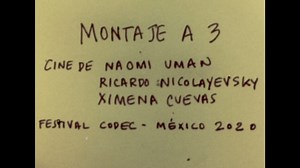 MONTAJE A 3
CINE DE NAOMI UMAN
RICARDO NICOLAYEVSKY
XIMENA CUEVAS
FESTIVAL CODEC - MÉXICO 2020